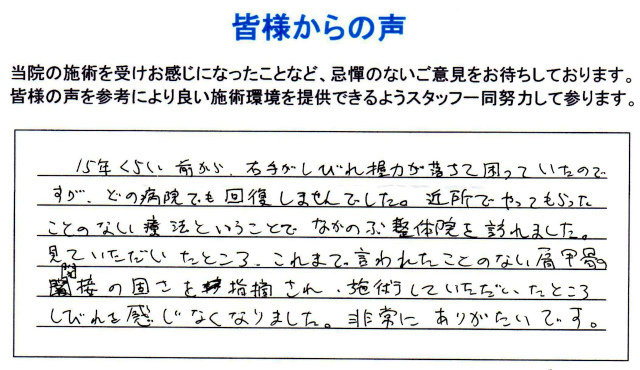 皆様からの声
当院の施術を受けお感じになったことなど、忌憚のないご意見をお待ちしております。
皆様の声を参考により良い施術環境を提供できるようスタッフ一同努力して参ります。
15年くらい前から、右手がしびれ握力が落ちて困っていたので
すが、どの病院でも回復しませんでした。近所でやってもらった
ことのない療法ということでなかのぶ整体院を訪れました。
見ていただいたところ、これまで言われたことのない肩甲骨
関接の固さを指摘され、施術していただいたところ
しびれを感じなくなりました。非常にありがたいです。